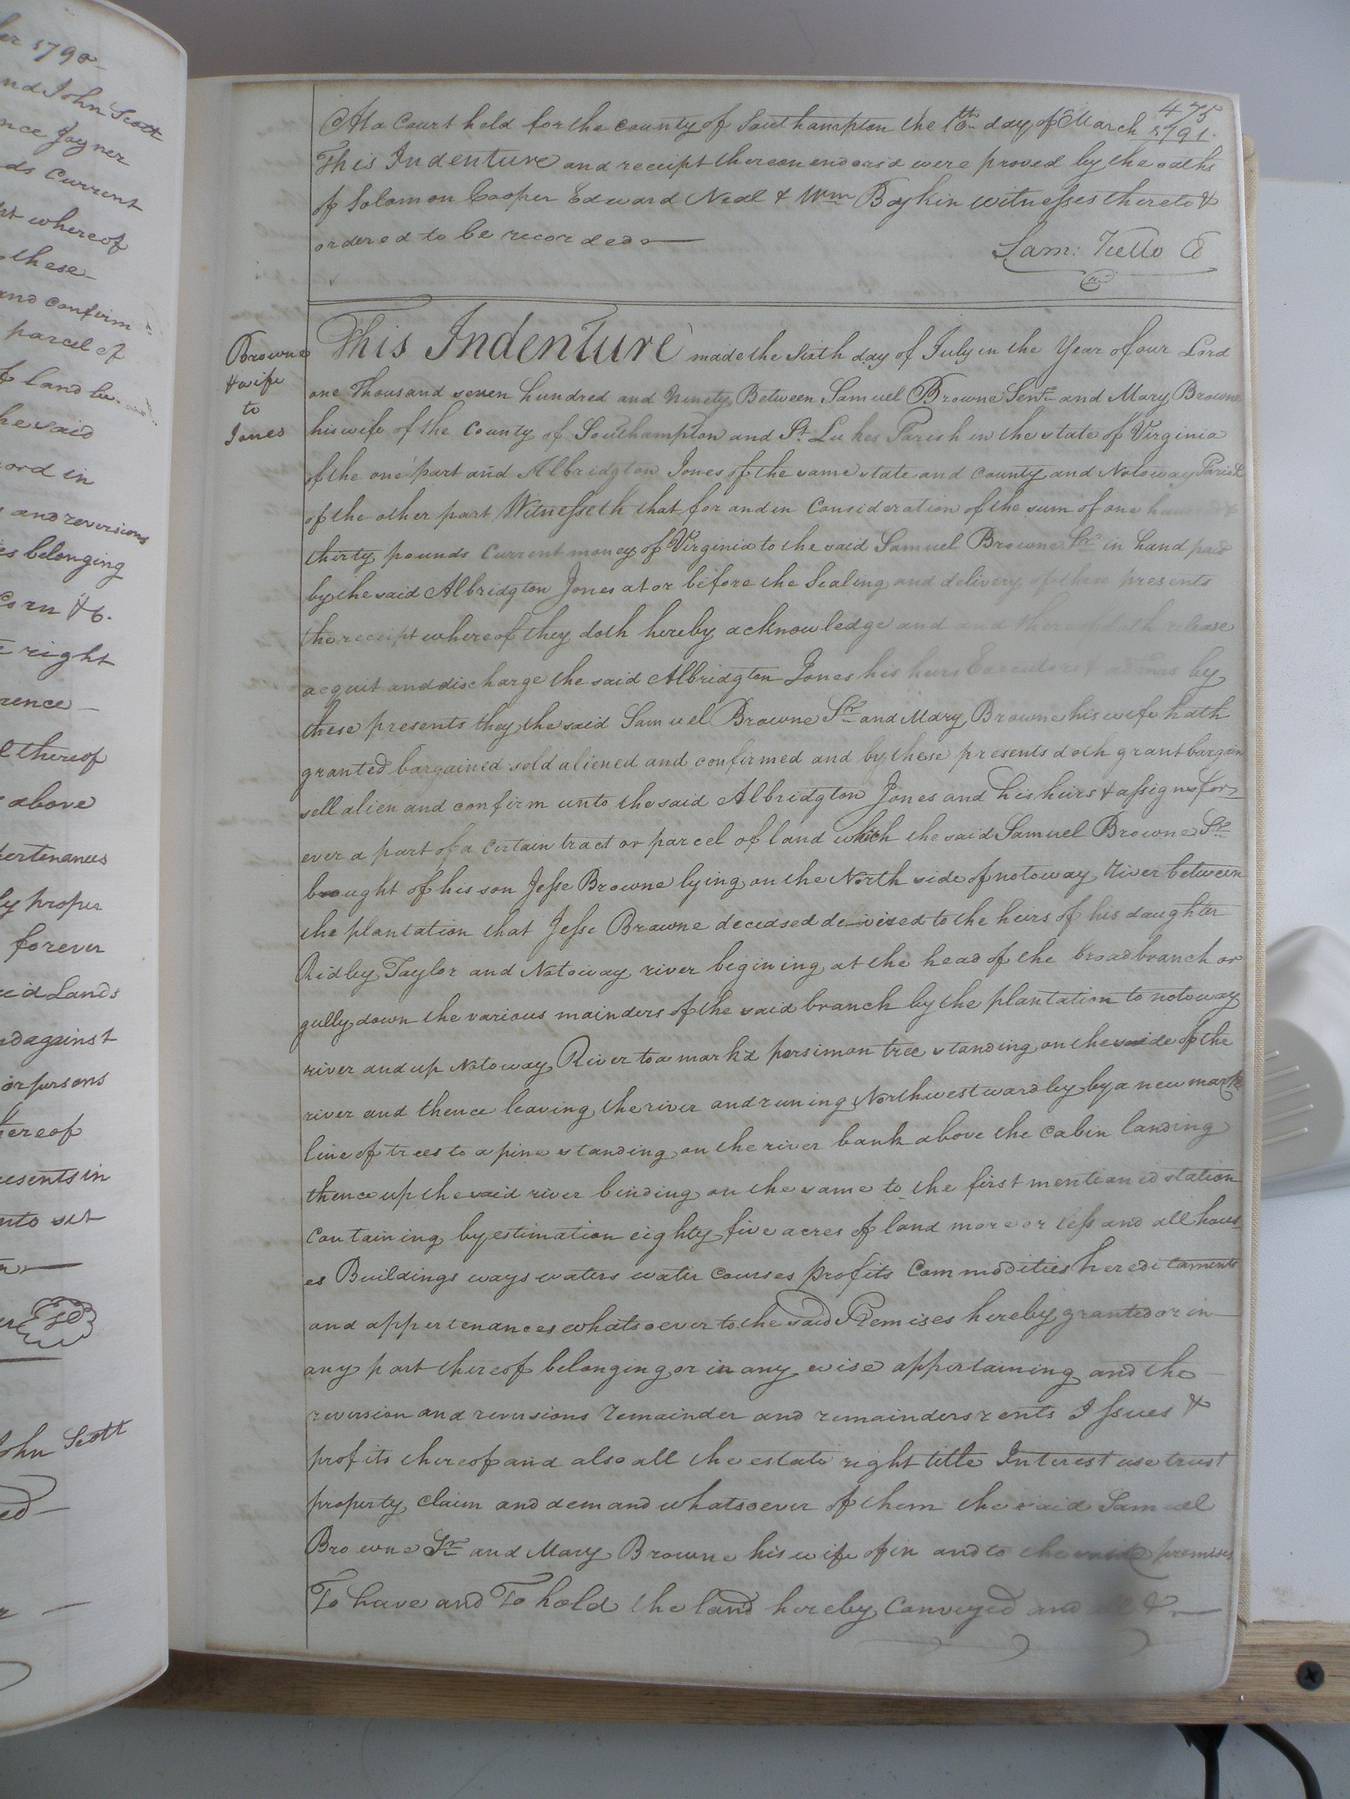 er 1790
and John Scott
nce Joyner
ds Current
pt whereof
these
and confirm
parcel of
of land
he said
ord in
and reversions
es belonging
Corn &c.
right
rence
thereof
above
pertenances
ly proper
forever
id Lands
nd against
or persons
hereof
resents in
nto set
John Scott
475
At a Court held for the county of Southampton the day of March 1791.
This Indenture and receipt thereon endorsd were proved by the oaths
of Solomon Cooper Edward Neal & Wm Boykin witnesses thereto &
ordered to be recorded
Sam: Kello C
Browne
& wife
to
Jones
This Indenture made the Sixth day of July in the Year of our Lord
one Thousand seven hundred and Ninety Between Samuel Browne Senr and Mary Browne
his wife of the County of Southampton and St Lukes Parish in the state of Virginia
of the one part and Albridgton Jones of the same state and County and Notoway Parish
of the other part Witnesseth that for and in Consideration of the sum of one hundred &
thirty pounds Current money of Virginia to the said Samuel Browne Sr in hand paid
by the said Albridgton Jones at or before the Sealing and delivery of these presents
the receipt whereof they doth hereby acknowledge and and thereof doth release
acquit and discharge the said Albridgton Jones his heirs Executors & admrs by
these presents they the said Samuel Browne Sr and Mary Browne his wife hath
granted bargained sold aliened and confirmed and by these presents doth grant bargain
sell alien and confirm unto the said Albridgton Jones and his heirs & assigns for
ever a part of a certain tract or parcel of land which the said Samuel Browne Sr
bought of his son Jesse Browne lying on the North side of notoway River between
the plantation that Jesse Browne deceased devized to the heirs of his daughter
Ridley Taylor and Notoway river begining at the head of the broad branch or
gully down the various mainders of the said branch by the plantation to notoway
river and up Notoway River to a mark'd persimon tree standing on the side of the
river and thence leaving the river and runing Northwestwardly by a new mark
line of trees to a pine standing on the river bank above the Cabin landing
thence up the said river binding on the same to the first mentioned station
Containing by estimation eighty five acres of land more or less and all hous
es Buildings ways waters water Courses profits Commodities hereditaments
and appertenances whatsoever to the said Premises hereby granted or in
any part thereof belonging or in any wise appertaining and the
reversion and reversions remainder and remainders rents Issues &
profits thereof and also all the estate right title Interest use trust
property claim and demand whatsoever of them the said Samuel
Browne Sr and Mary Browne his wife of in and to the said premises
To have and To hold the land hereby Conveyed and all &